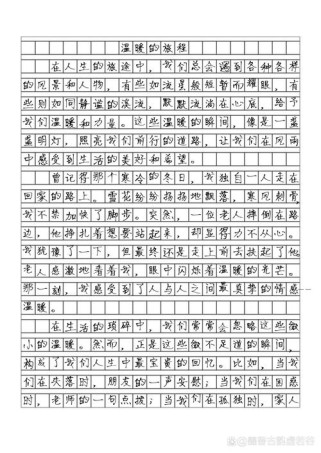 温暖的旅程
在人生的旅途中，我们总会遇到各种各样
的风景和人物，有些如流星般短暂而耀眼，有
些则如同静谧的溪流，默默流淌在心底，给予
我们温暖和力量。这些温暖的瞬间，像是一盏
盏明灯，照亮我们前行的道路，让我们在风雨
中感受到生活的美好和希望。
曾记得那个寒冷的冬日，我独自一人走在
回家的路上。雪花纷纷扬扬地飘落，寒风刺骨，
我不禁加快了脚步。突然，一位老人摔倒在路
边，他挣扎着想要站起来，却显得力不从心。
我犹豫了一下，但最终还是走上前去扶起了他
老人感激地看着我，眼中闪烁着温暖的光芒。
那一刻，我感受到了人与人之间最真挚的情感——
温暖。
在生活的琐碎中，我们常常会忽略这些微
小的温暖。然而，正是这些微不足道的瞬间，
构成了我们人生中最宝贵的回忆。比如，当我
们在失落时，朋友的一声安慰；当我们在困惑
时，老师的一句点拨；当我们在孤独时，家人